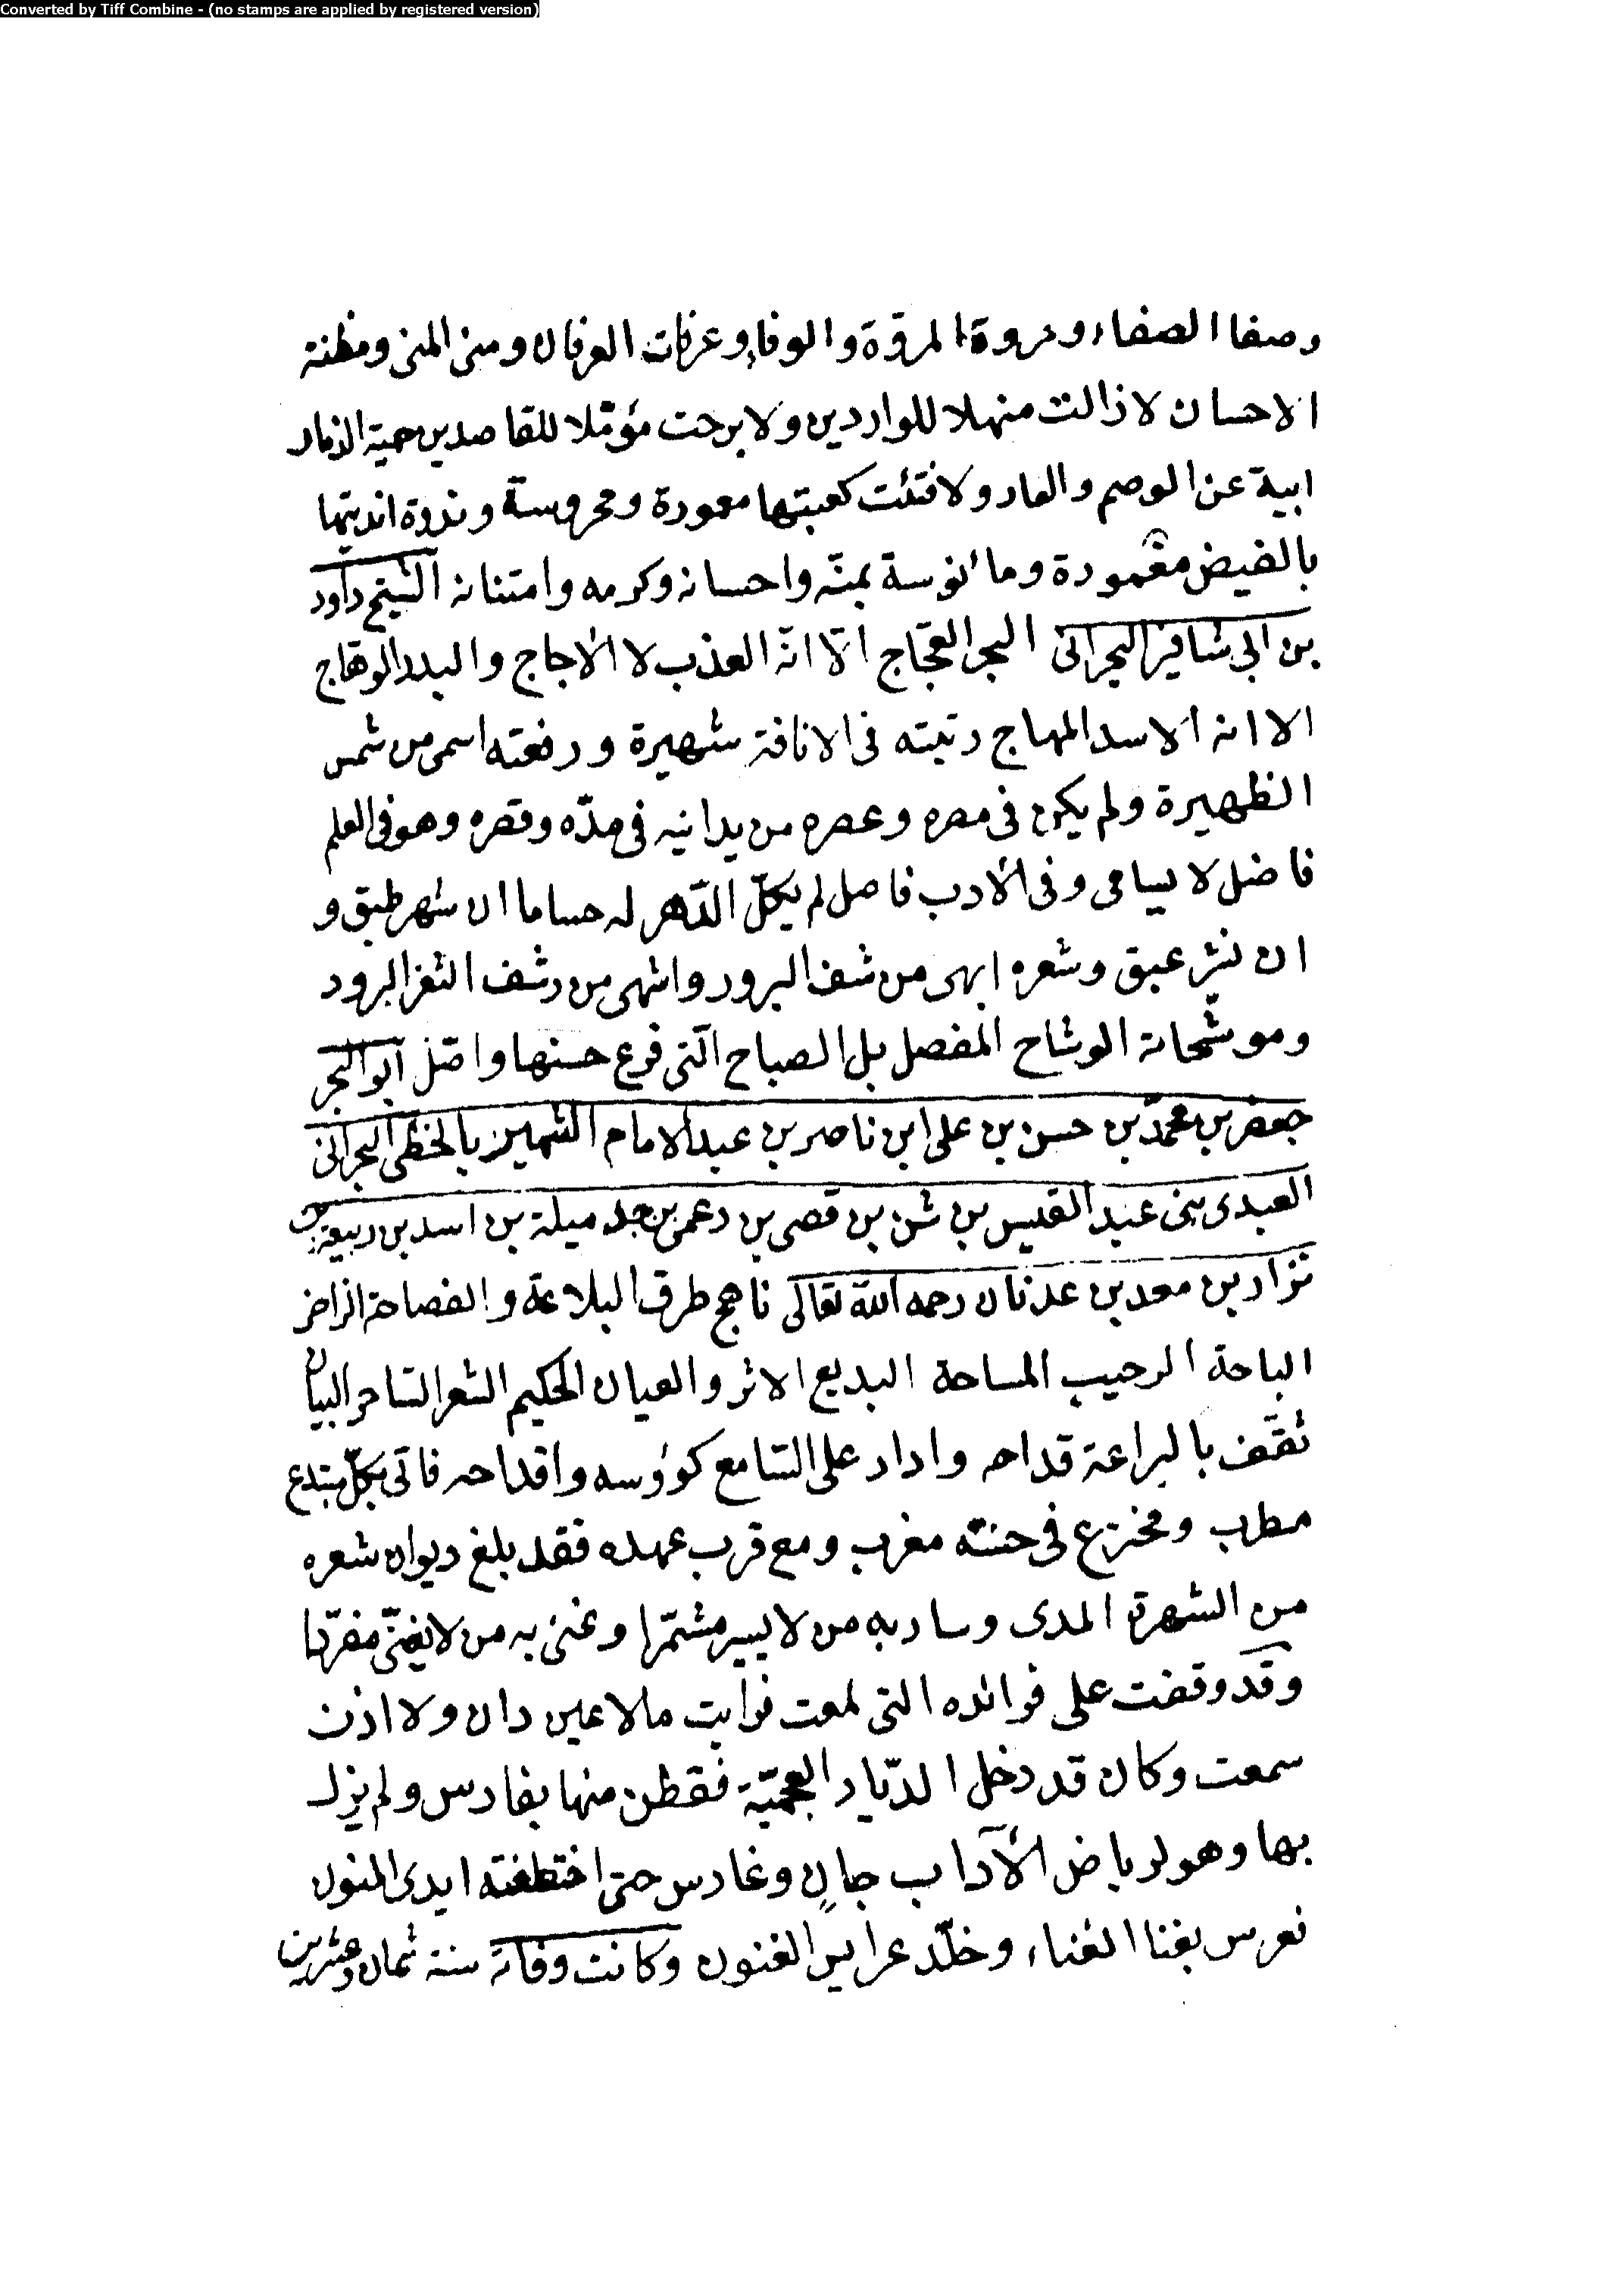 Converted by Tiff Combine - (no stamps are applied by registered version)
وصفا الصفاء ومروة المروّة والوفاء وعرفات العرفان ومنى المنى ومظنة
الاحسان لا زالت منهلا للواردين ولا برحت مؤمّلا للقاصدين حمية الذمار
ابية عن الوصم والعار ولا فتئت كعبتها معمورة ومحروسة وندوة انديتها
بالفيض مغمورة ومأنوسة بمنّه واحسانه وكرمه وامتنانه الشيخ داود
بن ابي شافيز البحراني البحر العجّاج الّا انّه العذب لا الاجاج والبدر الوهّاج
الا انه الاسد المهاج رتبته في الانافة شهيرة ورفعته اسمى من شمس
الظهيرة ولم يكن في مصره وعصره من يدانيه في مدّه وقصره وهو في العلم
فاضل لا يسامى وفي الأدب فاصل لم يكلّ الدّهر له حساما ان شهر طبق و
ان نشر عبق وشعره ابهى من شف البرود واشهى من رشف الثغر البرود
وموشحاته الوشاح المفصل بل الصباح الّتى فرع حسنها واصّل ابو البحر
جعفر بن محمّد بن حسن بن على ابن ناصر بن عبد الامام الشهير بالخطّى البحرانى
العبدى بنى عبد القيس بن شن بن قصى بن دعمى بن جد ميلة بن اسد بن ربيعة بن
نزار بن معد بن عدنان رحمه الله تعالى ناهج طرق البلاغة والفصاحة الزاخر
الباحة الرحيب المساحة البديع الاثر والعيان الحكيم الشعر الساحر البيان
ثقّف بالبراعة قداحه وادار على السّامع كؤوسه واقداحه فاتى بكلّ مبتدع
مطرب ومخترع فى حسنه مغرب ومع قرب عهده فقد بلغ ديوان شعره
من الشهرة المدى وسار به من لا يسير مشمّرا وغنى به من لا يغنّى مغرّدا
وقد وقفت على فرائده التى لمعت فرايت ما لا عين رات ولا اذن
سمعت وكان قد دخل الدّيار العجميّة فقطن منها بفارس ولم يزل
بها وهو لرياض الآداب جانٍ وغارس حتى اختطفته ايدى المنون
فعرس بفنا الفناء وخلّد عرايس الفنون وكانت وفاته سنة ثمان وعشرين